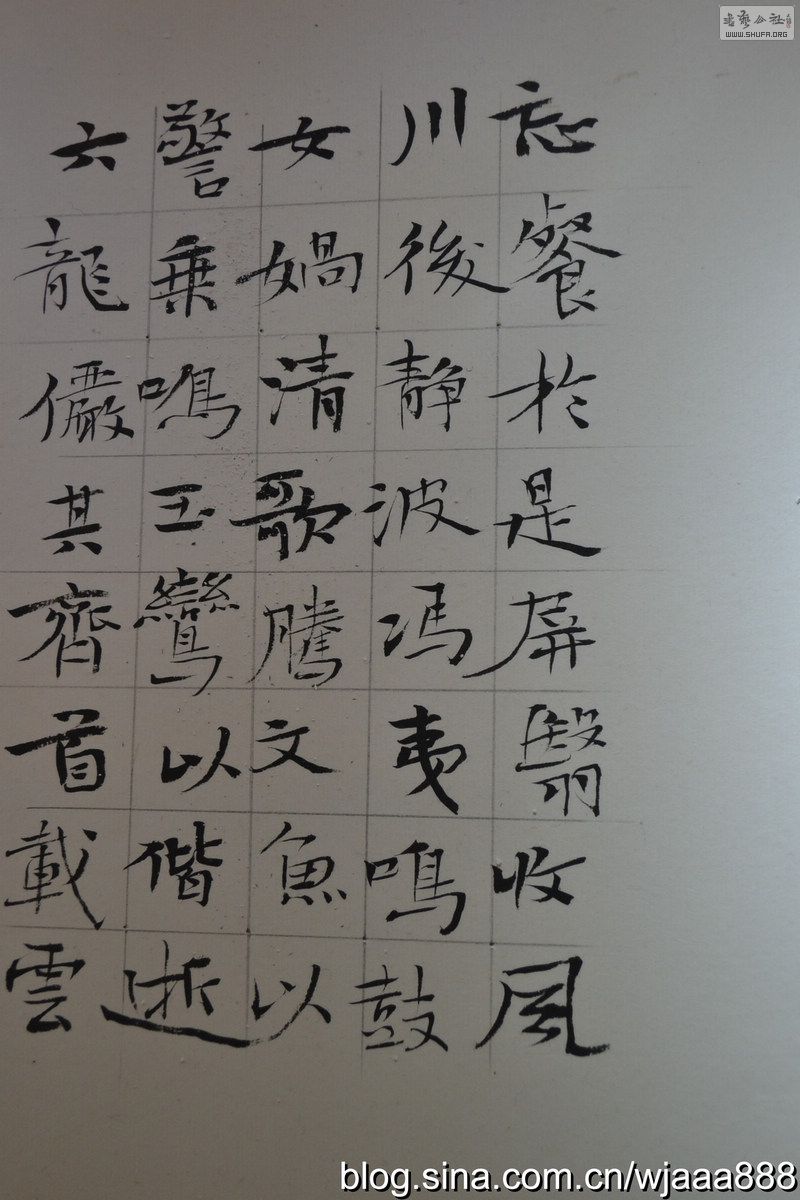 忘餐於是屏翳收風
川後静波馮夷鳴鼓
女媧清歌騰文魚以
警乗鳴玉鸞以偕逝
六龍儼其齊首載雲
書藝公社
WWW.SHUFA.ORG
blog.sina.com.cn/wjaaa888